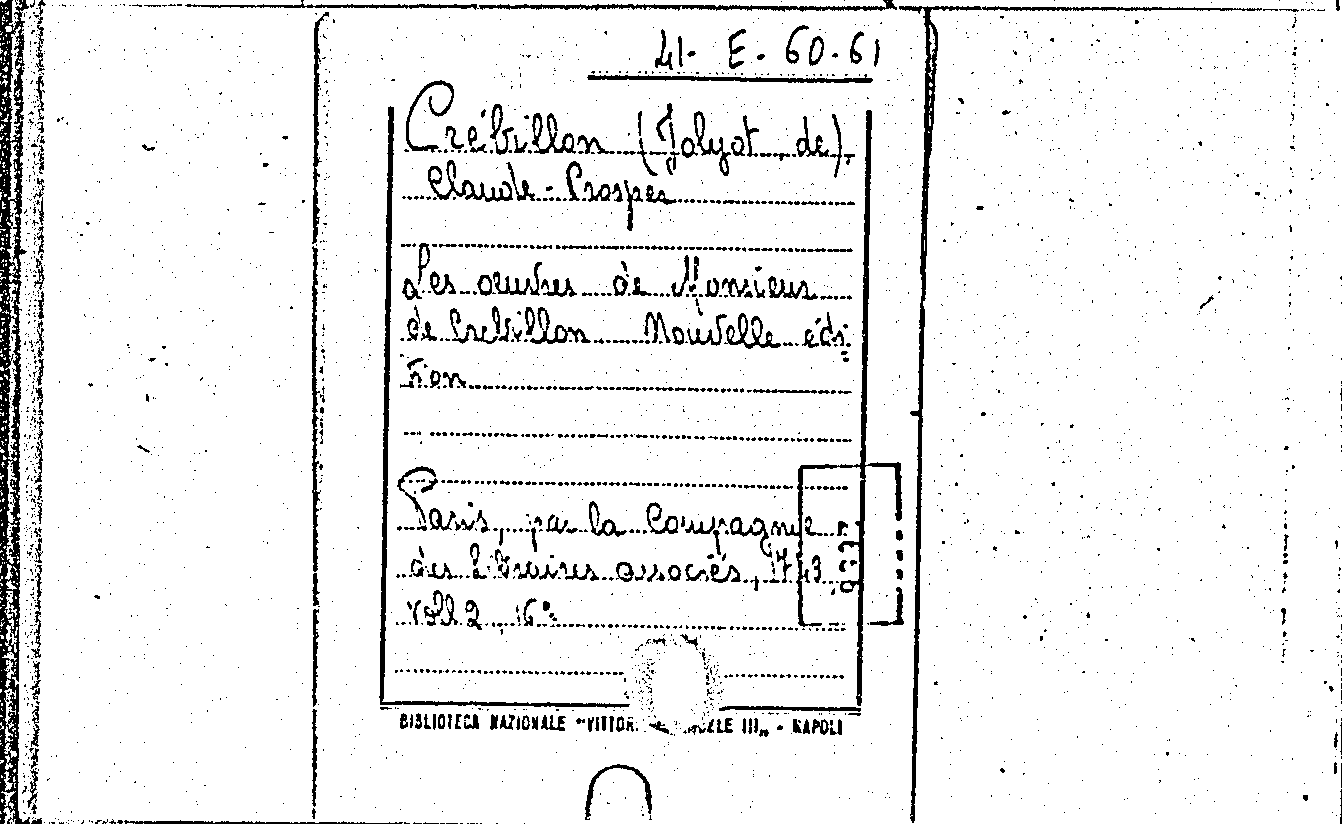 41. E. 60.61
Crébillon (Jolyot de).
Claude-Prosper
Les œuvres de Monsieur
de Crebillon Nouvelle édi=
tion
Paris, par la Compagnie
des Libraires associés, 1743
voll 2, 16°
BIBLIOTECA NAZIONALE "VITTOR. III„ - NAPOLI